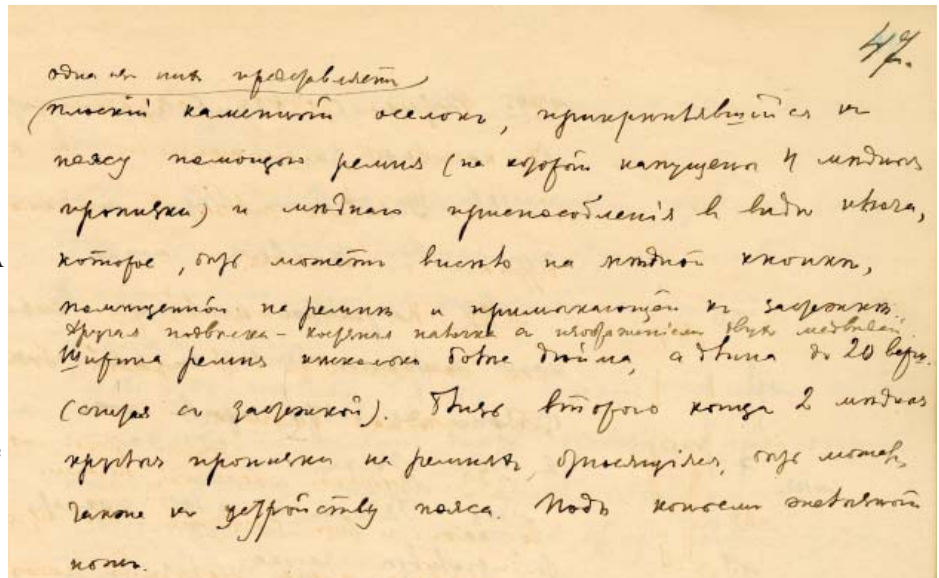 47.
одна из них представляетъ
плоскій каменный оселокъ, прикрѣплявшійся къ
поясу помощью ремня (на который напущены 4 мѣдныя
пронизки) и мѣднаго приспособленія въ видѣ
которое, бытъ можетъ висѣло на мѣдной кнопкѣ,
помѣщенной на ремнѣ и примыкающей къ застежкѣ.
Другая подвѣска – костяная съ изображеніемъ двухъ медвѣдей
Ширина ремня нѣсколько болѣе дюйма, а длина до 20 верш.
(считая съ застежкой). Близъ второго конца 2 мѣдныя
круглыя пронизки на ремняхъ, относящіяся, бытъ можетъ,
также къ устройству пояса. Подъ желѣзный
ножъ.